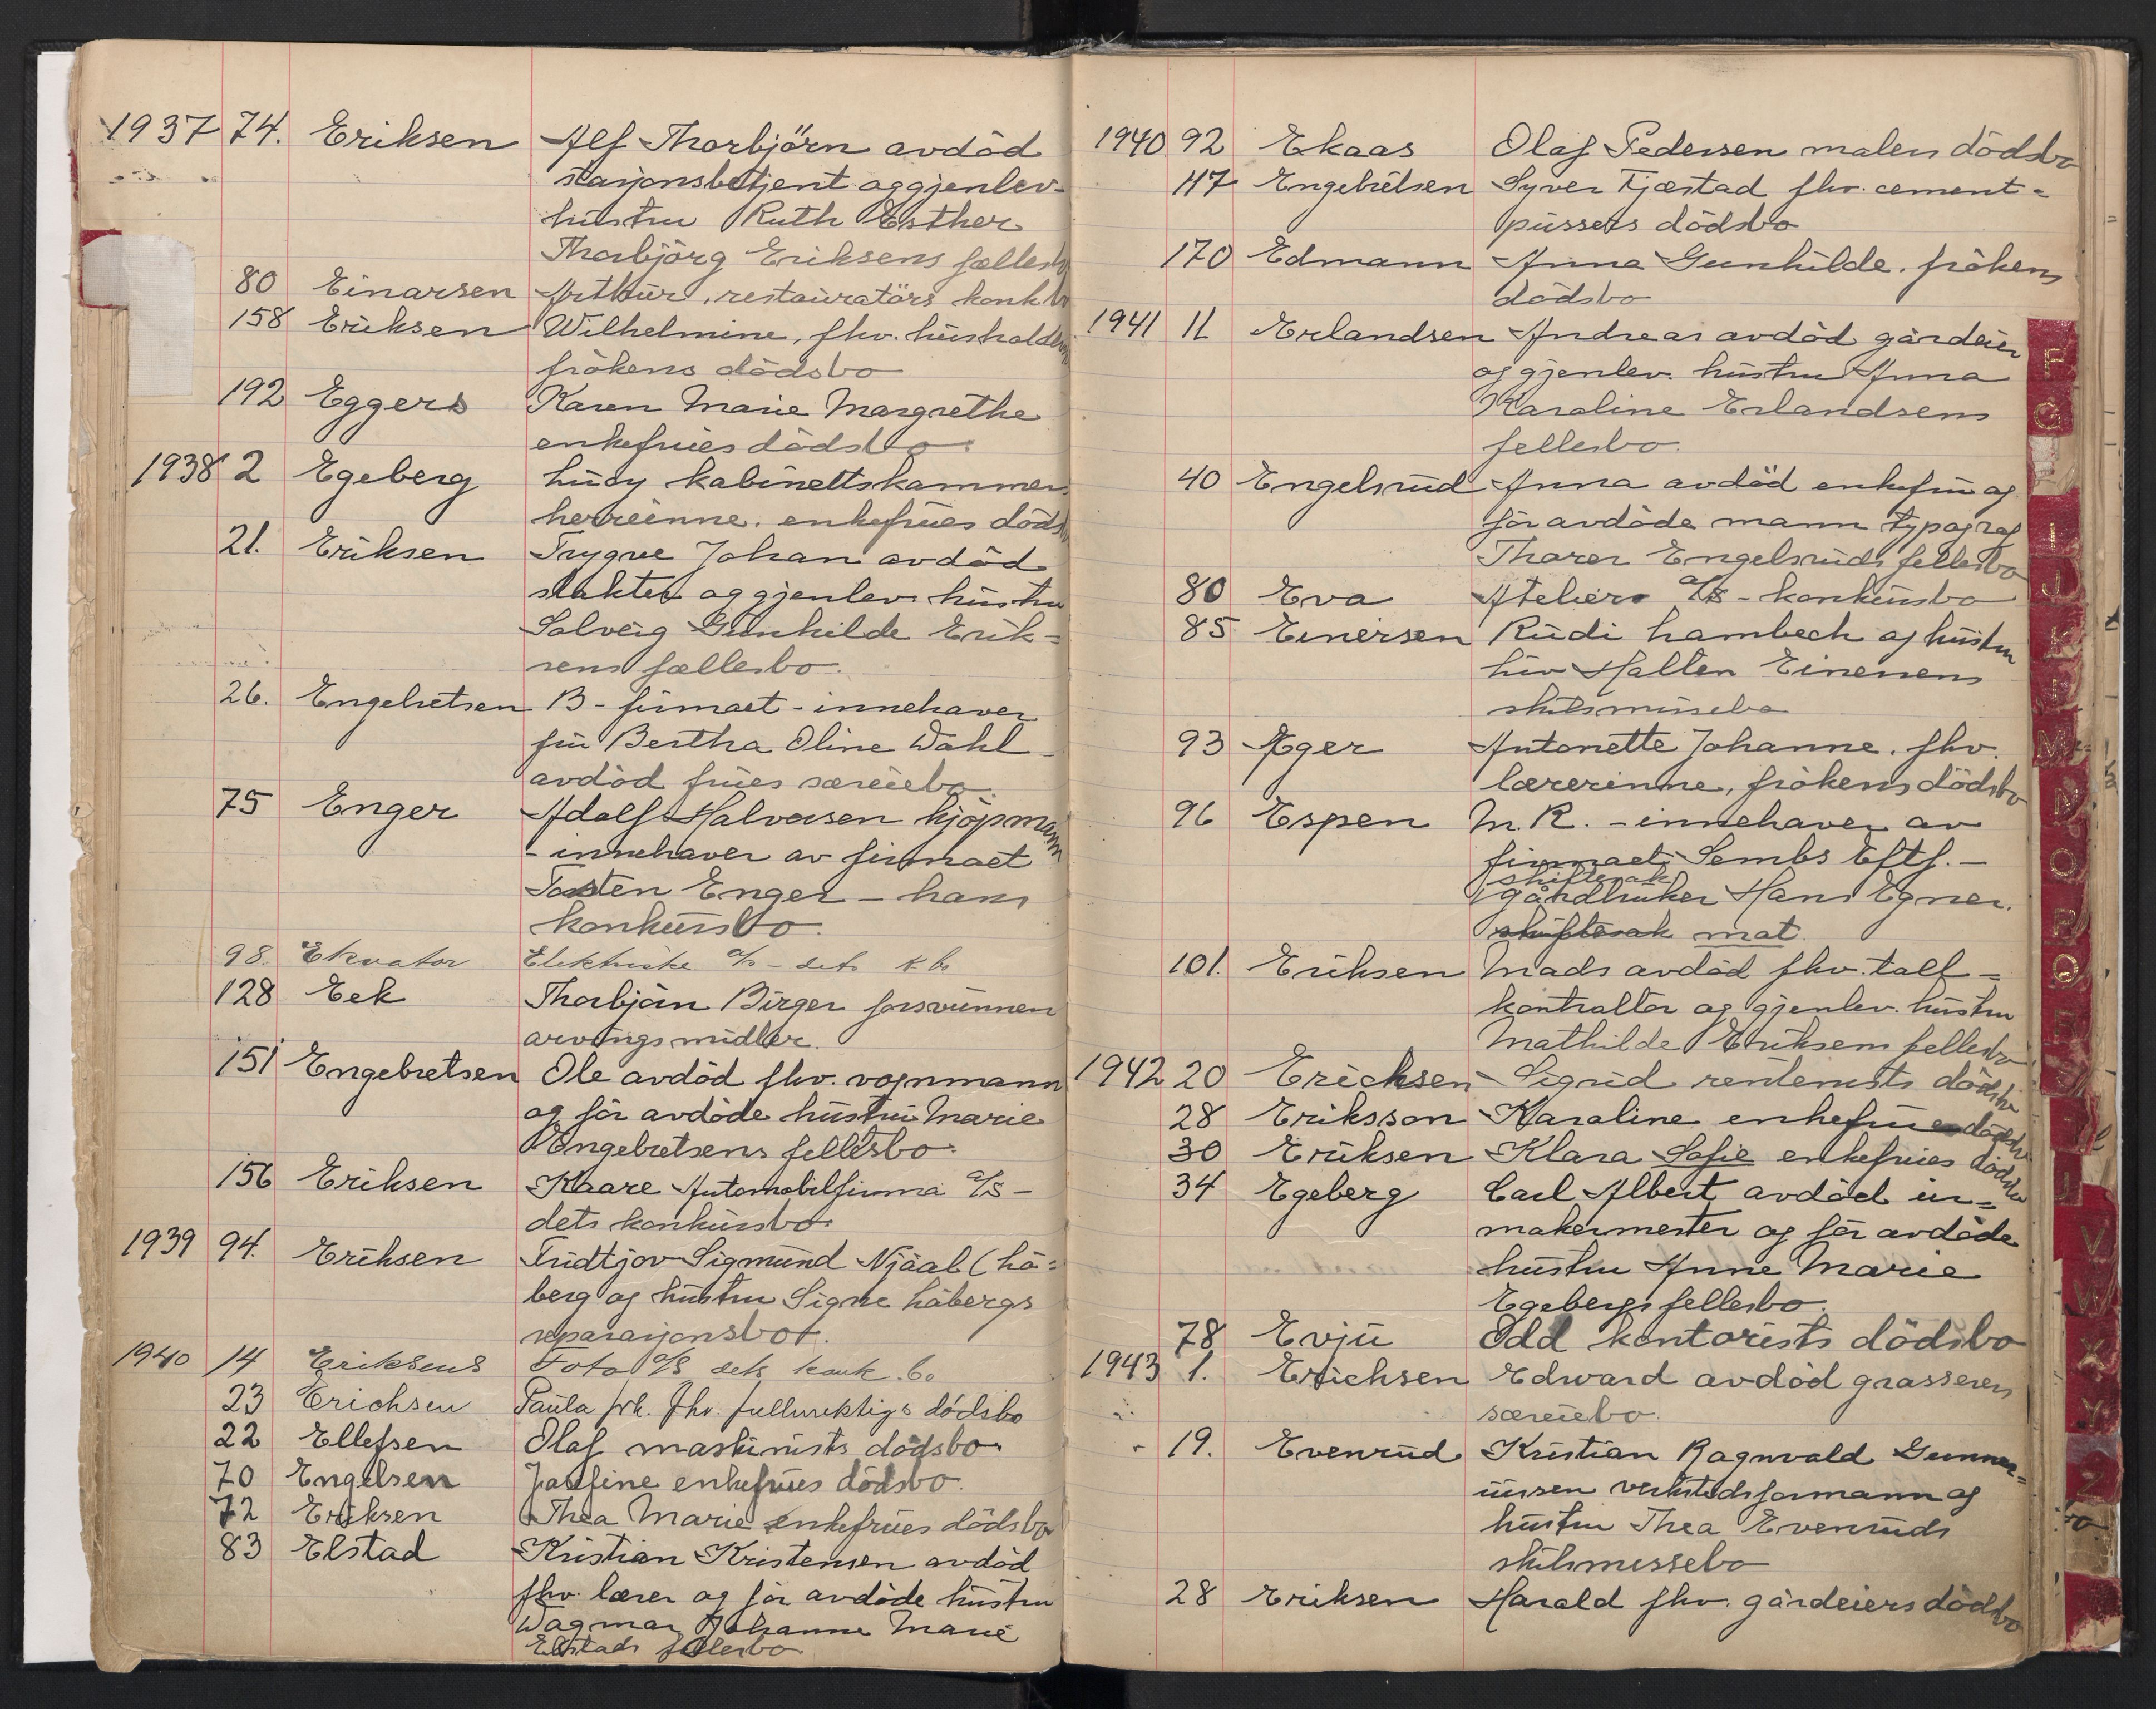 1937 74. Eriksen Alf Thorbjörn avdöd
stasjonsbetjent og gjenlev.
hustru Ruth Esther
Thorbjörg Eriksens fællesbo
80 Einarsen Arthur, restauratörs konkbo
158 Eriksen Wilhelmine, fhv. husholder
frökens dödsbo
192 Eggers Karen Marie Margrethe
enkefrues dödsbo
1938 2 Egeberg Lucy kabinettskammer
herreinne. enkefrues dödsbo
21. Eriksen Trygve Johan avdöd
slakter og gjenlev. hustru
Solveig Gunhilde Erik=
sens fællesbo.
26. Engebretsen B - firmaet - innehaver
fru Bertha Oline Dahl -
avdöd frues særeiebo.
75 Enger Adolf Halvorsen kjöpmann
- innehaver av firmaet
Torsten Enger - hans
konkursbo.
98. Ekvator Elektriske A/S - dets k.bo
128 Eek Thorbjörn Birger forsvunnen
arvings midler.
151 Engebretsen Ole avdöd fhv. vognmann
og för avdöde hustru Marie
Engebretsens fellesbo.
156 Eriksen Kaare Automobilfirma A/S -
dets konkursbo.
1939 94. Eriksen Fridtjov Sigmund Njaal (Hå=
berg og hustru Signe Håbergs
separasjonsbo.
1940 14 Eriksens Foto A/S dets konk.bo
23 Erichsen Paula frk. fhv. fullmektigs dödsbo
22 Ellefsen Olaf maskinists dödsbo.
70 Engelsen Josefine enkefrues dödsbo.
72 Eriksen Thea Marie enkefrues dödsbo
83 Elstad Kristian Kristensen avdöd
fhv. lærer og för avdöde hustru
Dagmar Johanne Marie
Elstads fellesbo
1940 92 Ekaas Olaf Pedersen malers dödsbo
117 Engebretsen Syver Tjæstad fhv. cement=
pussers dödsbo
170 Edmann Anna Gunhilde. frökens
dödsbo
1941 11 Erlandsen Andreas avdöd gårdeier
og gjenlev. hustru Anna
Karoline Erlandsens
fellesbo.
40 Engelsrud Anna avdöd enkefru og
för avdöde mann typograf
Thorer Engelsruds fellesbo
80 Eva Atelier A/S - konkursbo
85 Einersen Rudi Lambech og hustru
Liv Halten Einersens
skilsmissebo
93 Æger Antonette Johanne. fhv.
lærerinne, frökens dödsbo
96 Espen M. R. - innehaver av
firmaet Sembs Eftf. -
skiftesak
gårdbruker Hans Egner.
skiftesak mat.
101. Eriksen Mads avdöd fhv. toll=
kontrollör og gjenlev. hustru
Mathilde Eriksens fellesbo
1942 20 Erichsen Sigrid rentenists dödsbo
28 Eriksson Karoline enkefrues dödsbo
30 Eriksen Klara Sofie enkefrues dödsbo
34 Egeberg Carl Albert avdöd ur=
makermester og för avdöde
hustru Anne Marie
Egebergs fellesbo.
78 Evju Odd kontorists dödsbo
1943 1. Erichsen Edward avdöd grosserers
særeiebo.
19. Evenrud Kristian Ragnvald Gunner=
iusen verkstedsformann og
hustru Thea Evenruds
skilsmissebo
28 Eriksen Harald fhv. gårdeiers dödsbo
F
G
I
J
K
L
M
N
O
P
Q
R
V
W
X
Y
Z